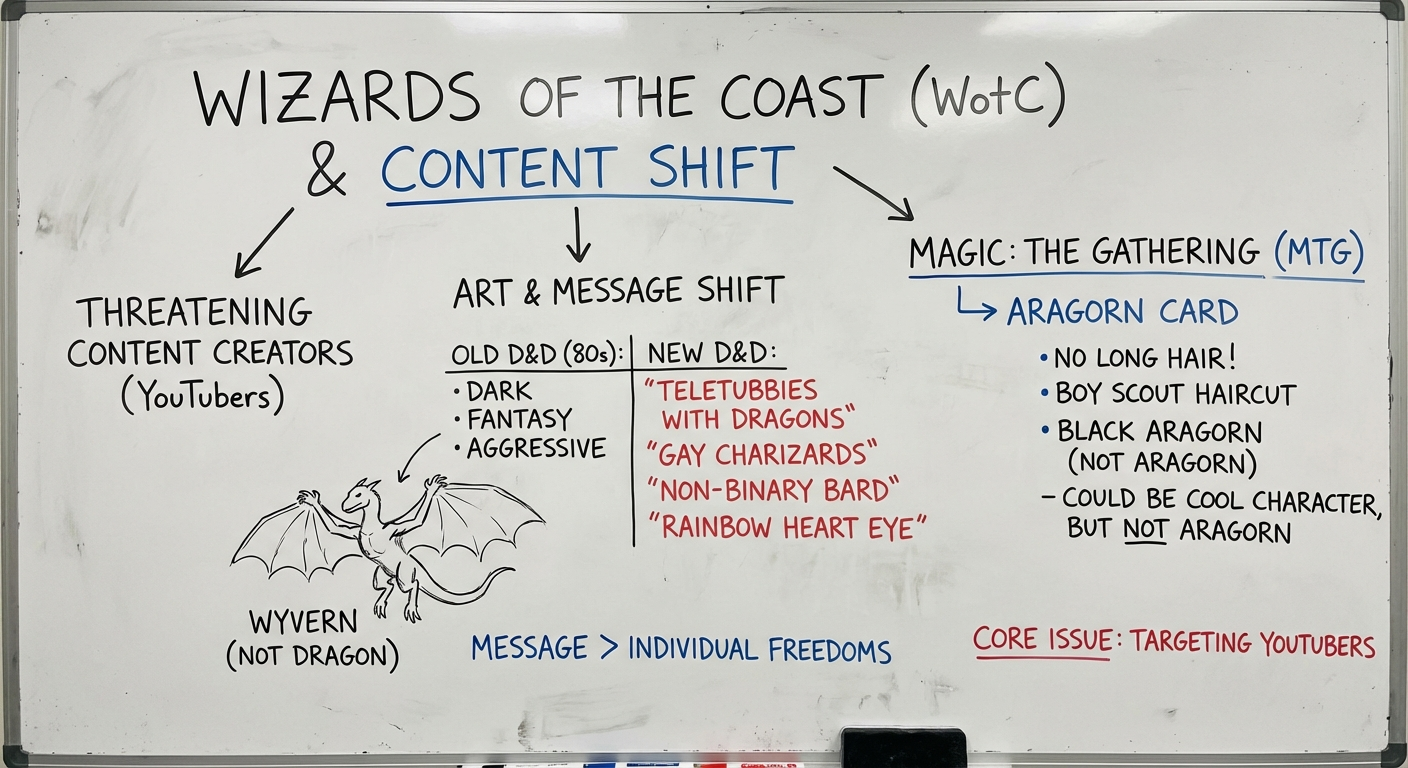 WIZARDS OF THE COAST (WotC)
& CONTENT SHIFT
THREATENING
CONTENT CREATORS
(YouTubers)
ART & MESSAGE SHIFT
OLD D&D (80s):
• DARK
• FANTASY
• AGGRESSIVE
NEW D&D:
"TELETUBBIES
WITH DRAGONS"
"GAY CHARIZARDS"
"NON-BINARY BARD"
"RAINBOW HEART EYE"
WYVERN
(NOT DRAGON)
MESSAGE > INDIVIDUAL FREEDOMS
MAGIC: THE GATHERING (MTG)
ARAGORN CARD
• NO LONG HAIR!
• BOY SCOUT HAIRCUT
• BLACK ARAGORN
(NOT ARAGORN)
– COULD BE COOL CHARACTER,
BUT NOT ARAGORN
CORE ISSUE: TARGETING YOUTUBERS